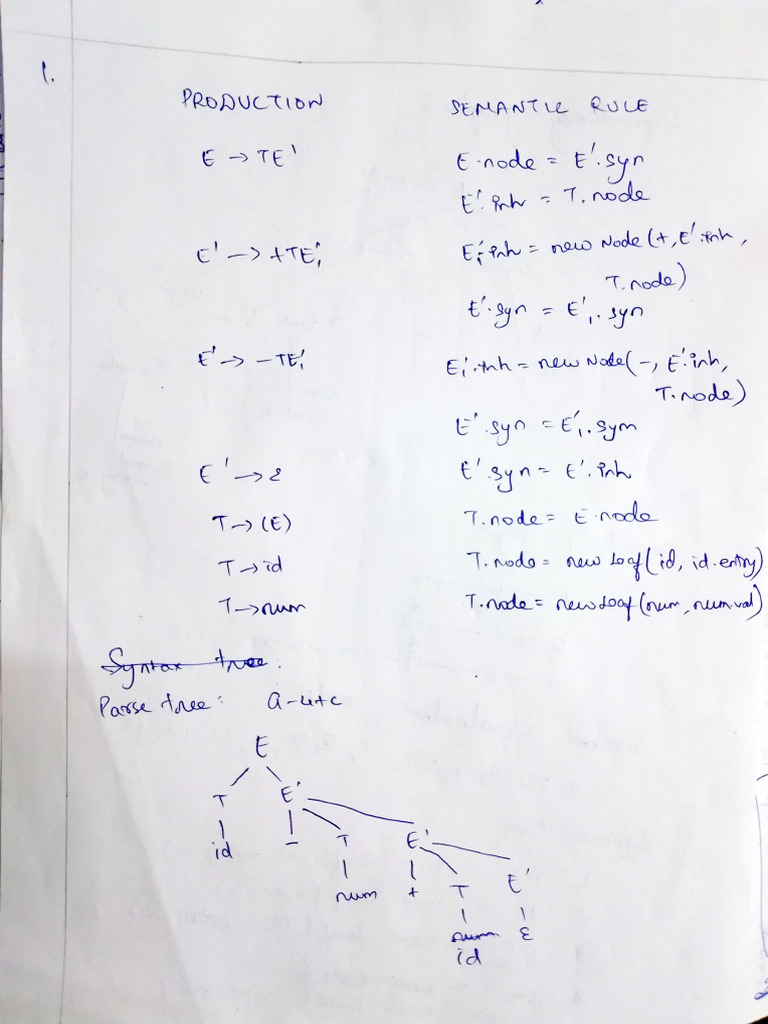 1.
PRODUCTION SEMANTIC RULE
E → TE' E.node = E'.syn
E'.inh = T.node
E' → +TE'₁ E'₁.inh = new Node(+, E'.inh,
T.node)
E'.syn = E'₁.syn
E' → -TE'₁ E'₁.inh = new Node(-, E'.inh,
T.node)
E'.syn = E'₁.sym
E' → ε E'.syn = E'.inh
T → (E) T.node = E.node
T → id T.node = new Leaf(id, id.entry)
T → num T.node = new Leaf(num, num.val)
Syntax tree.
Parse tree: a-4+c
E
T E'
id - T E'
num + T E'
num ε
id